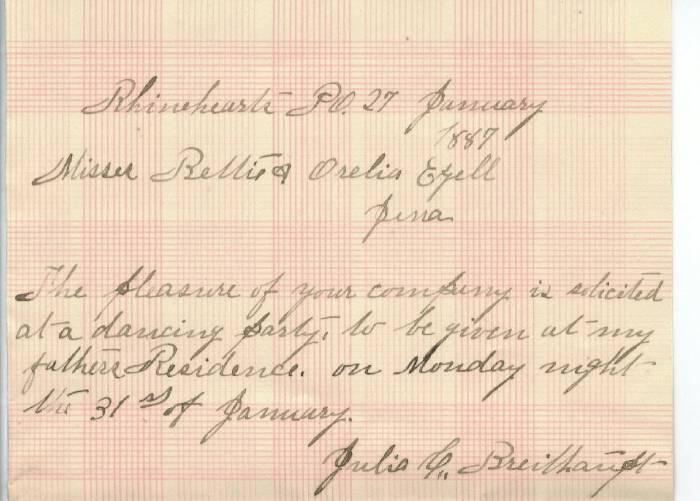 Rhinehearts P.O. 27 January
1887
Misses Bettie & Orelia Ezell
Jena
The pleasure of your company is solicited
at a dancing party, to be given at my
fathers Residence. on Monday night
the 31st of January.
Julia C. Breithaupt